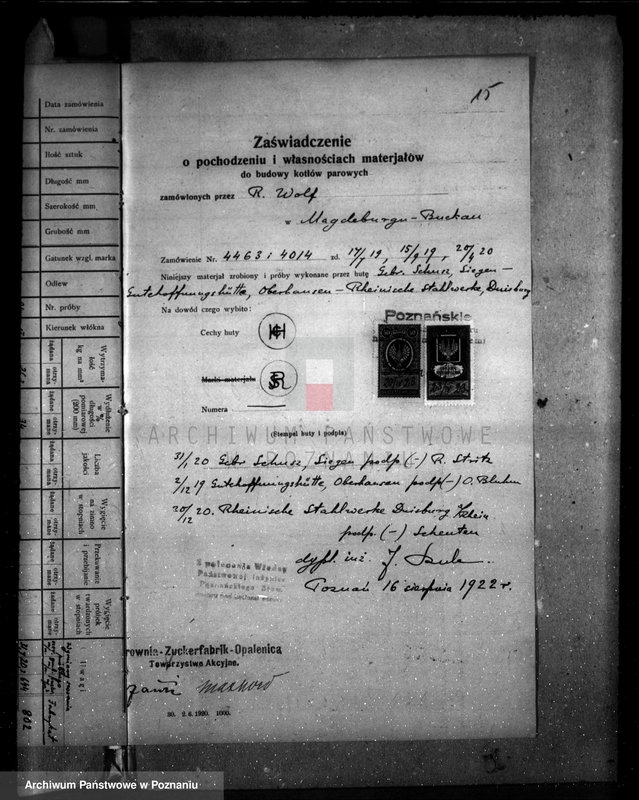 15
Zaświadczenie
o pochodzeniu i własnościach materjałów
do budowy kotłów parowych
zamówionych przez R. Wolf
w Magdeburgu-Buckau
Zamówienie Nr. 4463 i 4014 zd. 17/7 19, 15/9 19, 20/4 20
Niniejszy materjał zrobiony i próby wykonane przez hutę Gebr. Schuss, Siegen -
Gutehoffnungshütte, Oberhausen - Rheinische Stahlwerke, Duisburg
Na dowód czego wybito:
Poznańskie
Cechy huty
Marki materjału
Numera
(Stempel huty i podpis)
31/1 20 Gebr Schuss, Siegen podp (-) R. Stritz
2/12 19 Gutehoffnungshütte, Oberhausen podp (-) O. Bluhm
20/12 20. Rheinische Stahlwerke Duisburg
podp. (-) Scheuten
dypl. inż. J.
Poznań 16 sierpnia 1922 r.
Z polecenia Władzy
Państwowej Inżynier
rownia-Zuckerfabrik-Opalenica
Towarzystwo Akcyjne.
30. 2. 6. 1920. 1000.
Data zamówienia
Nr. zamówienia
Ilość sztuk
Długość mm
Szerokość mm
Grubość mm
Gatunek wzgl. marka
Odlew
Nr. próby
Kierunek włókna
Wytrzymałość kg na mm²
żądana
otrzymana
Wydłużenie w % długości pomiarowej (200 mm)
żądane
otrzymane
Liczba jakości
żądana
otrzymana
Wygięcie na zimno w stopniach
żądane
otrzymane
Przekuwanie i przebijanie
żądane
otrzymane
Wygięcie próbek twardzonych w stopniach
żądane
otrzymane
Uwagi
802
ARCHIWUM PAŃSTWOWE
POZNAŃ
Archiwum Państwowe w Poznaniu